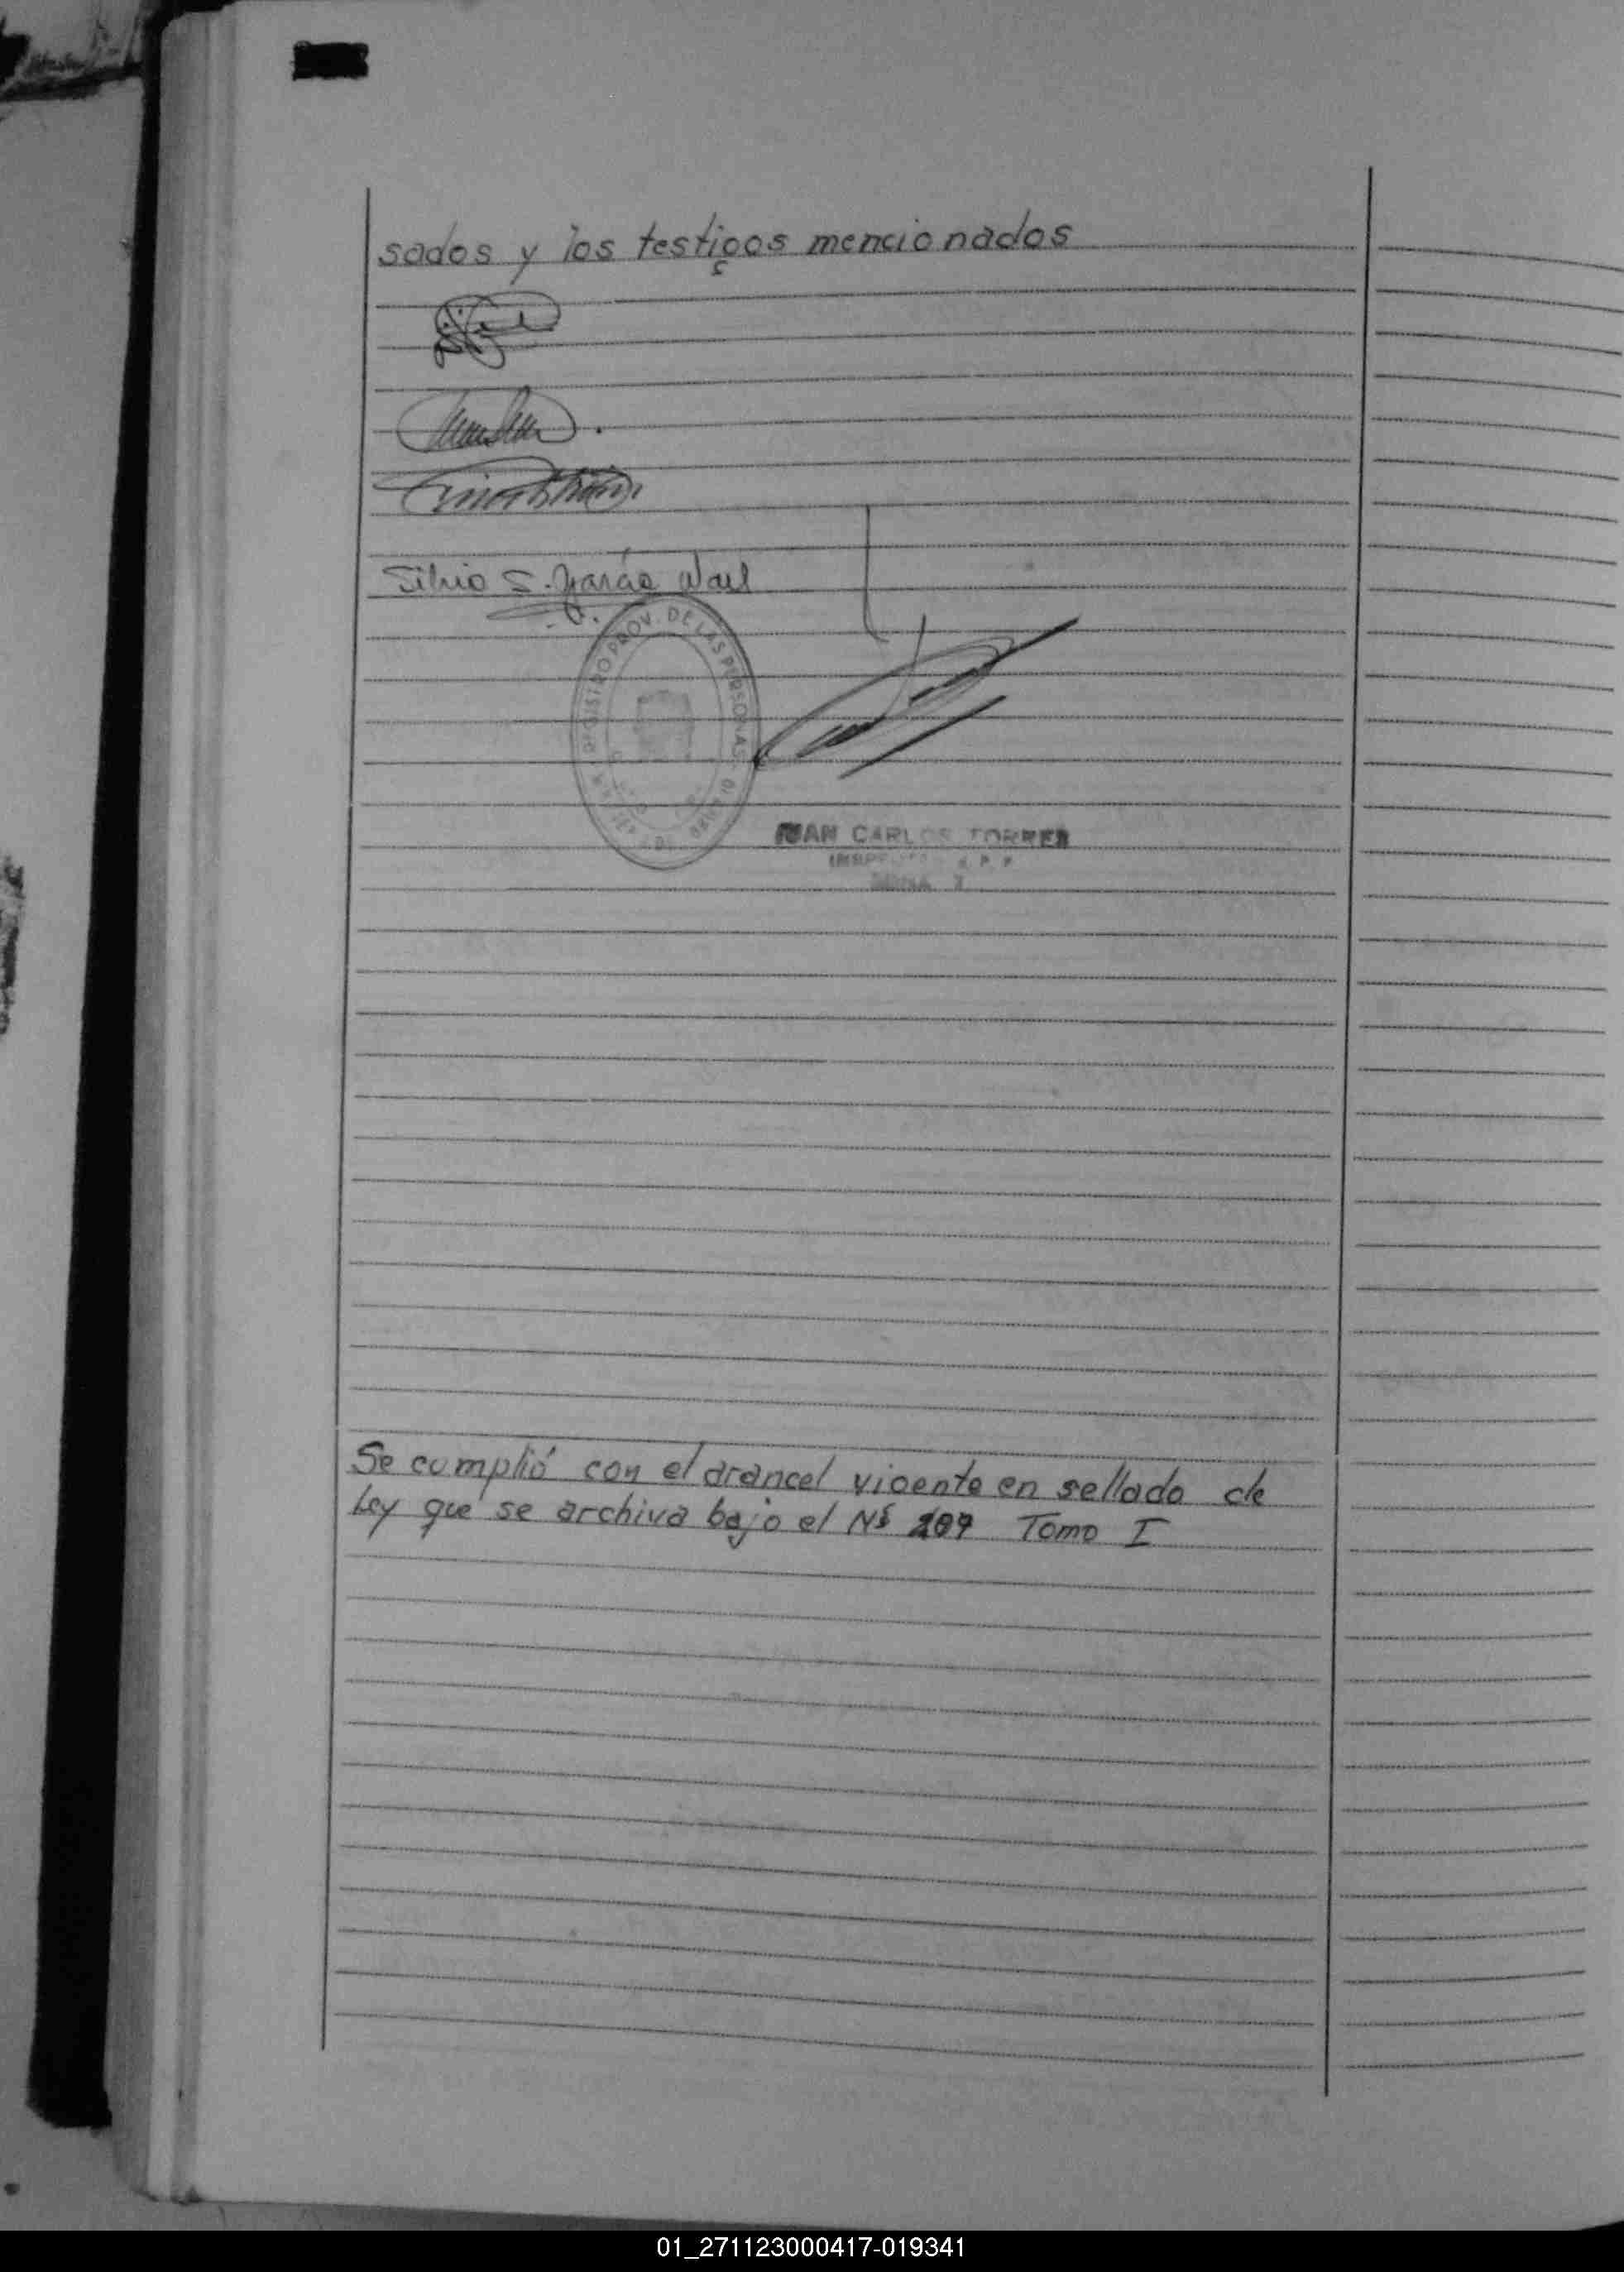 sados y los testigos mencionados
Silvio S. García
REGISTRO PROV. DE LAS PERSONAS
JUAN CARLOS TORRES
Se cumplió con el arancel vigente en sellado de
Ley que se archiva bajo el Nº 209 Tomo I
01_271123000417-019341